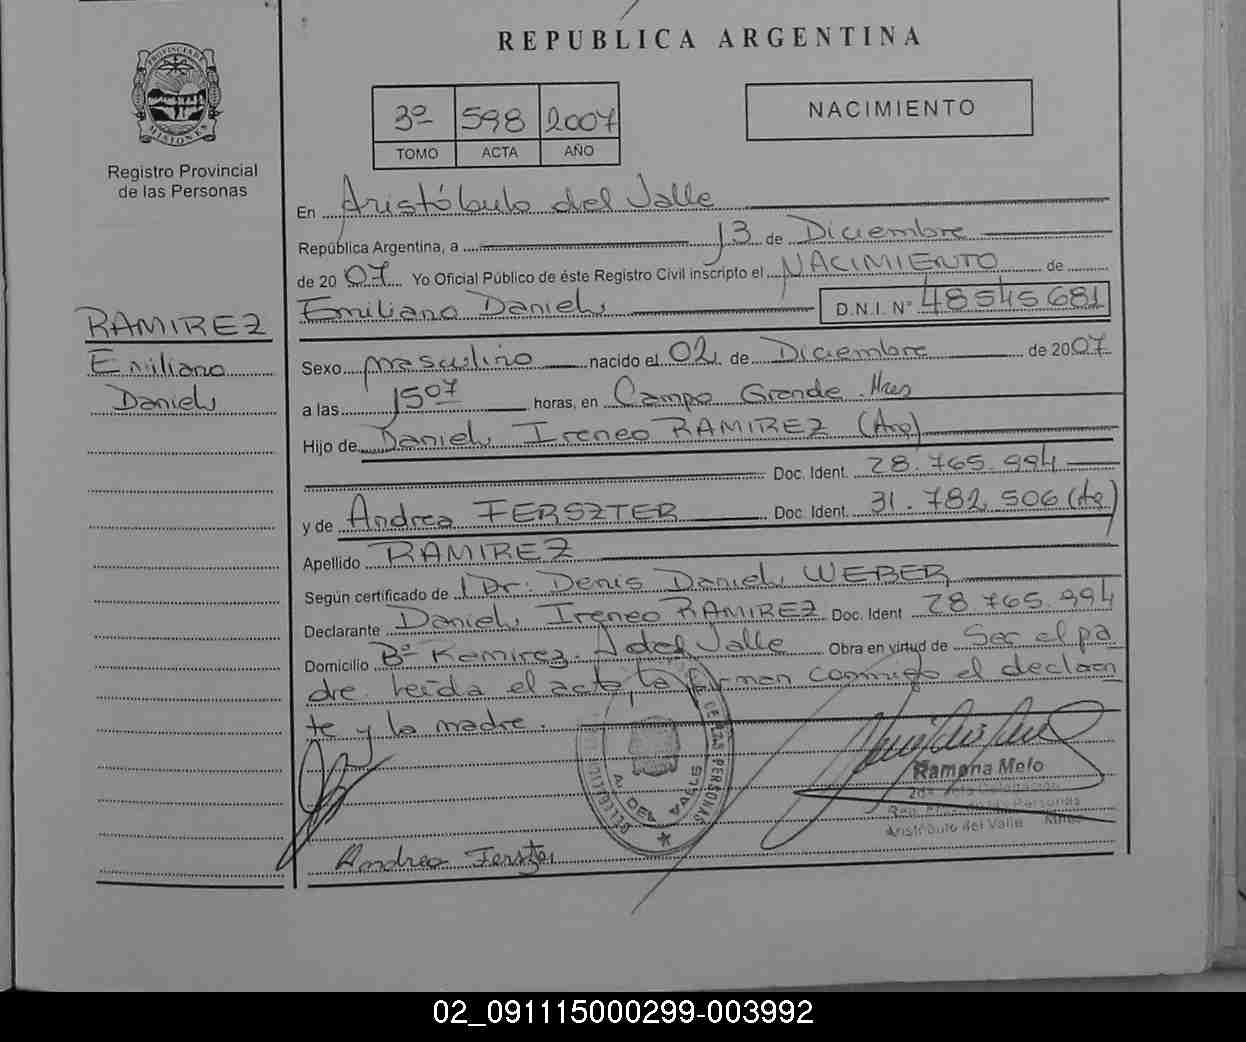 REPUBLICA ARGENTINA
PROVINCIA DE MISIONES
Registro Provincial
de las Personas
3º 598 2007
TOMO ACTA AÑO
NACIMIENTO
En Aristóbulo del Valle
República Argentina, a 13 de Diciembre
de 2007. Yo Oficial Público de éste Registro Civil inscripto el NACIMIENTO de
Emiliano Daniel D.N.I. Nº 48545681
RAMIREZ
Emiliano
Daniel
Sexo masculino nacido el 02 de Diciembre de 2007
a las 15 07 horas, en Campo Grande. Mnes
Hijo de Daniel Ireneo RAMIREZ (Arg)
Doc. Ident. 28.765.994
y de Andrea FERSZTER Doc. Ident. 31.782.506 (Ar)
Apellido RAMIREZ
Según certificado de Dr: Denis Daniel WEBER
Declarante Daniel Ireneo RAMIREZ Doc. Ident 28.765.994
Domicilio Bº Ramirez. A del Valle Obra en virtud de Ser el pa
dre. Leída el acta, la firman conmigo el declaran
te y la madre.
DE LAS PERSONAS
A. DEL VALLE
Ramona Melo
Delegación
Reg. Prov. de las Personas
Aristóbulo del Valle Mnes
Andrea Ferszter
02_091115000299-003992